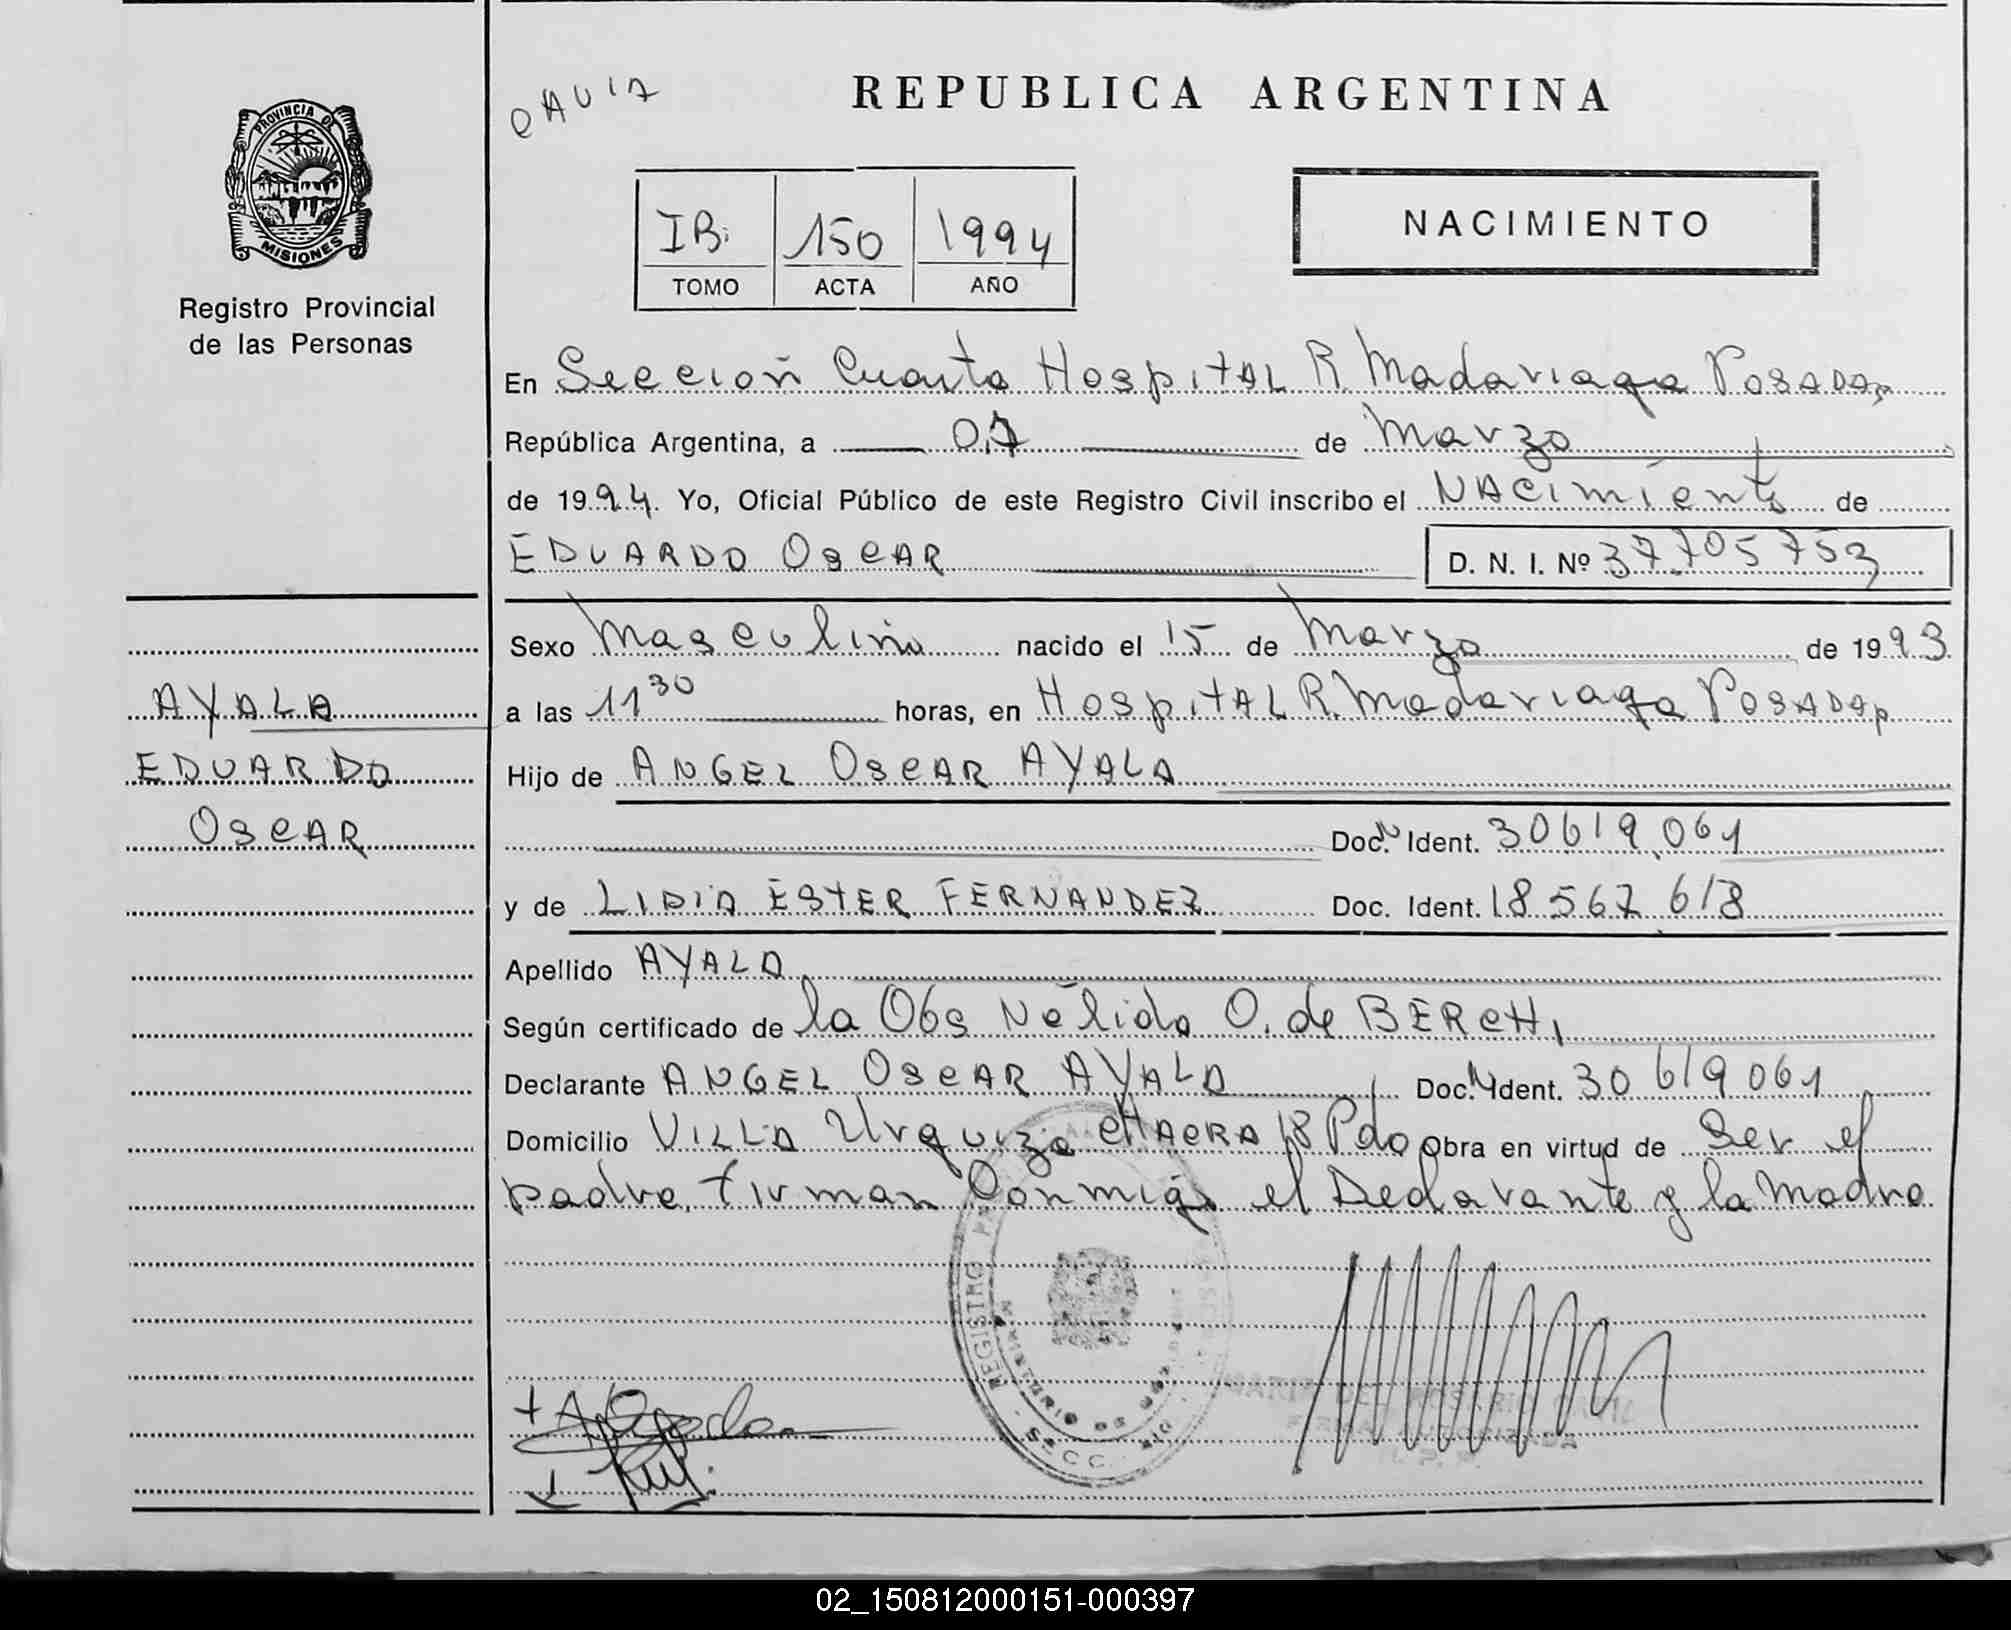 PROVINCIA DE
MISIONES
Registro Provincial
de las Personas
REPUBLICA ARGENTINA
IB. 150 1994
TOMO ACTA AÑO
NACIMIENTO
En Sección Cuarta Hospital R. Madariaga Posadas
República Argentina, a 07 de Marzo
de 1994. Yo, Oficial Público de este Registro Civil inscribo el Nacimiento de
EDUARDO OSCAR D. N. I. Nº 37.705753
Sexo Masculino nacido el 15 de Marzo de 1993
a las 11 30 horas, en Hospital R. Madariaga Posadas
Hijo de ANGEL OSCAR AYALA
Doc. N Ident. 30619.061
y de LIDIA ESTER FERNANDEZ Doc. Ident. 18567618
Apellido AYALA
Según certificado de la Obs Nélida O. de BERCHI
Declarante ANGEL OSCAR AYALA Doc. N Ident. 30619061
Domicilio VILLA Urquiza CHACRA 18 Pdo Obra en virtud de Ser el
padre, firman Conmigo el Declarante y la Madre
AYALA
EDUARDO
OSCAR
REGISTRO
SECC.
02_150812000151-000397